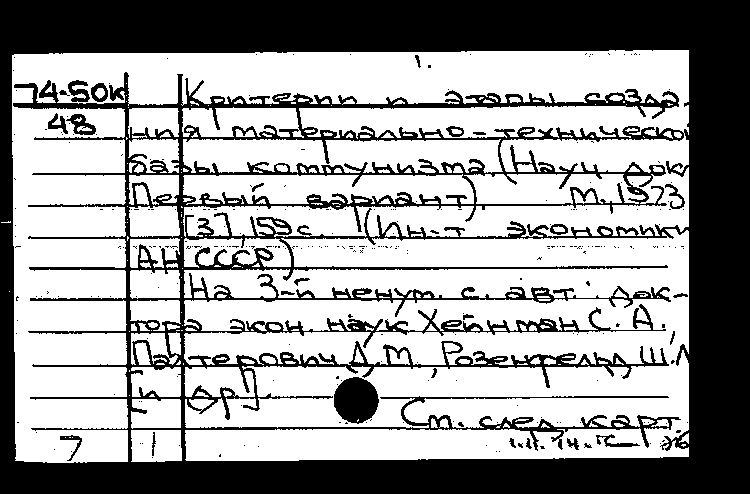 1.
74-50к Критерии и этапы созда-
48 ния материально-технической
базы коммунизма. (Науч. док.
Первый вариант). М., 1973
[3], 159 с. (Ин-т экономики
АН СССР)
На 3-й ненум. с. авт.: док-
тора экон. наук Хейнман С. А.,
Палтерович Д. М., Розенфельд Ш. Л.
[и др].
См. след. карт.
7 1